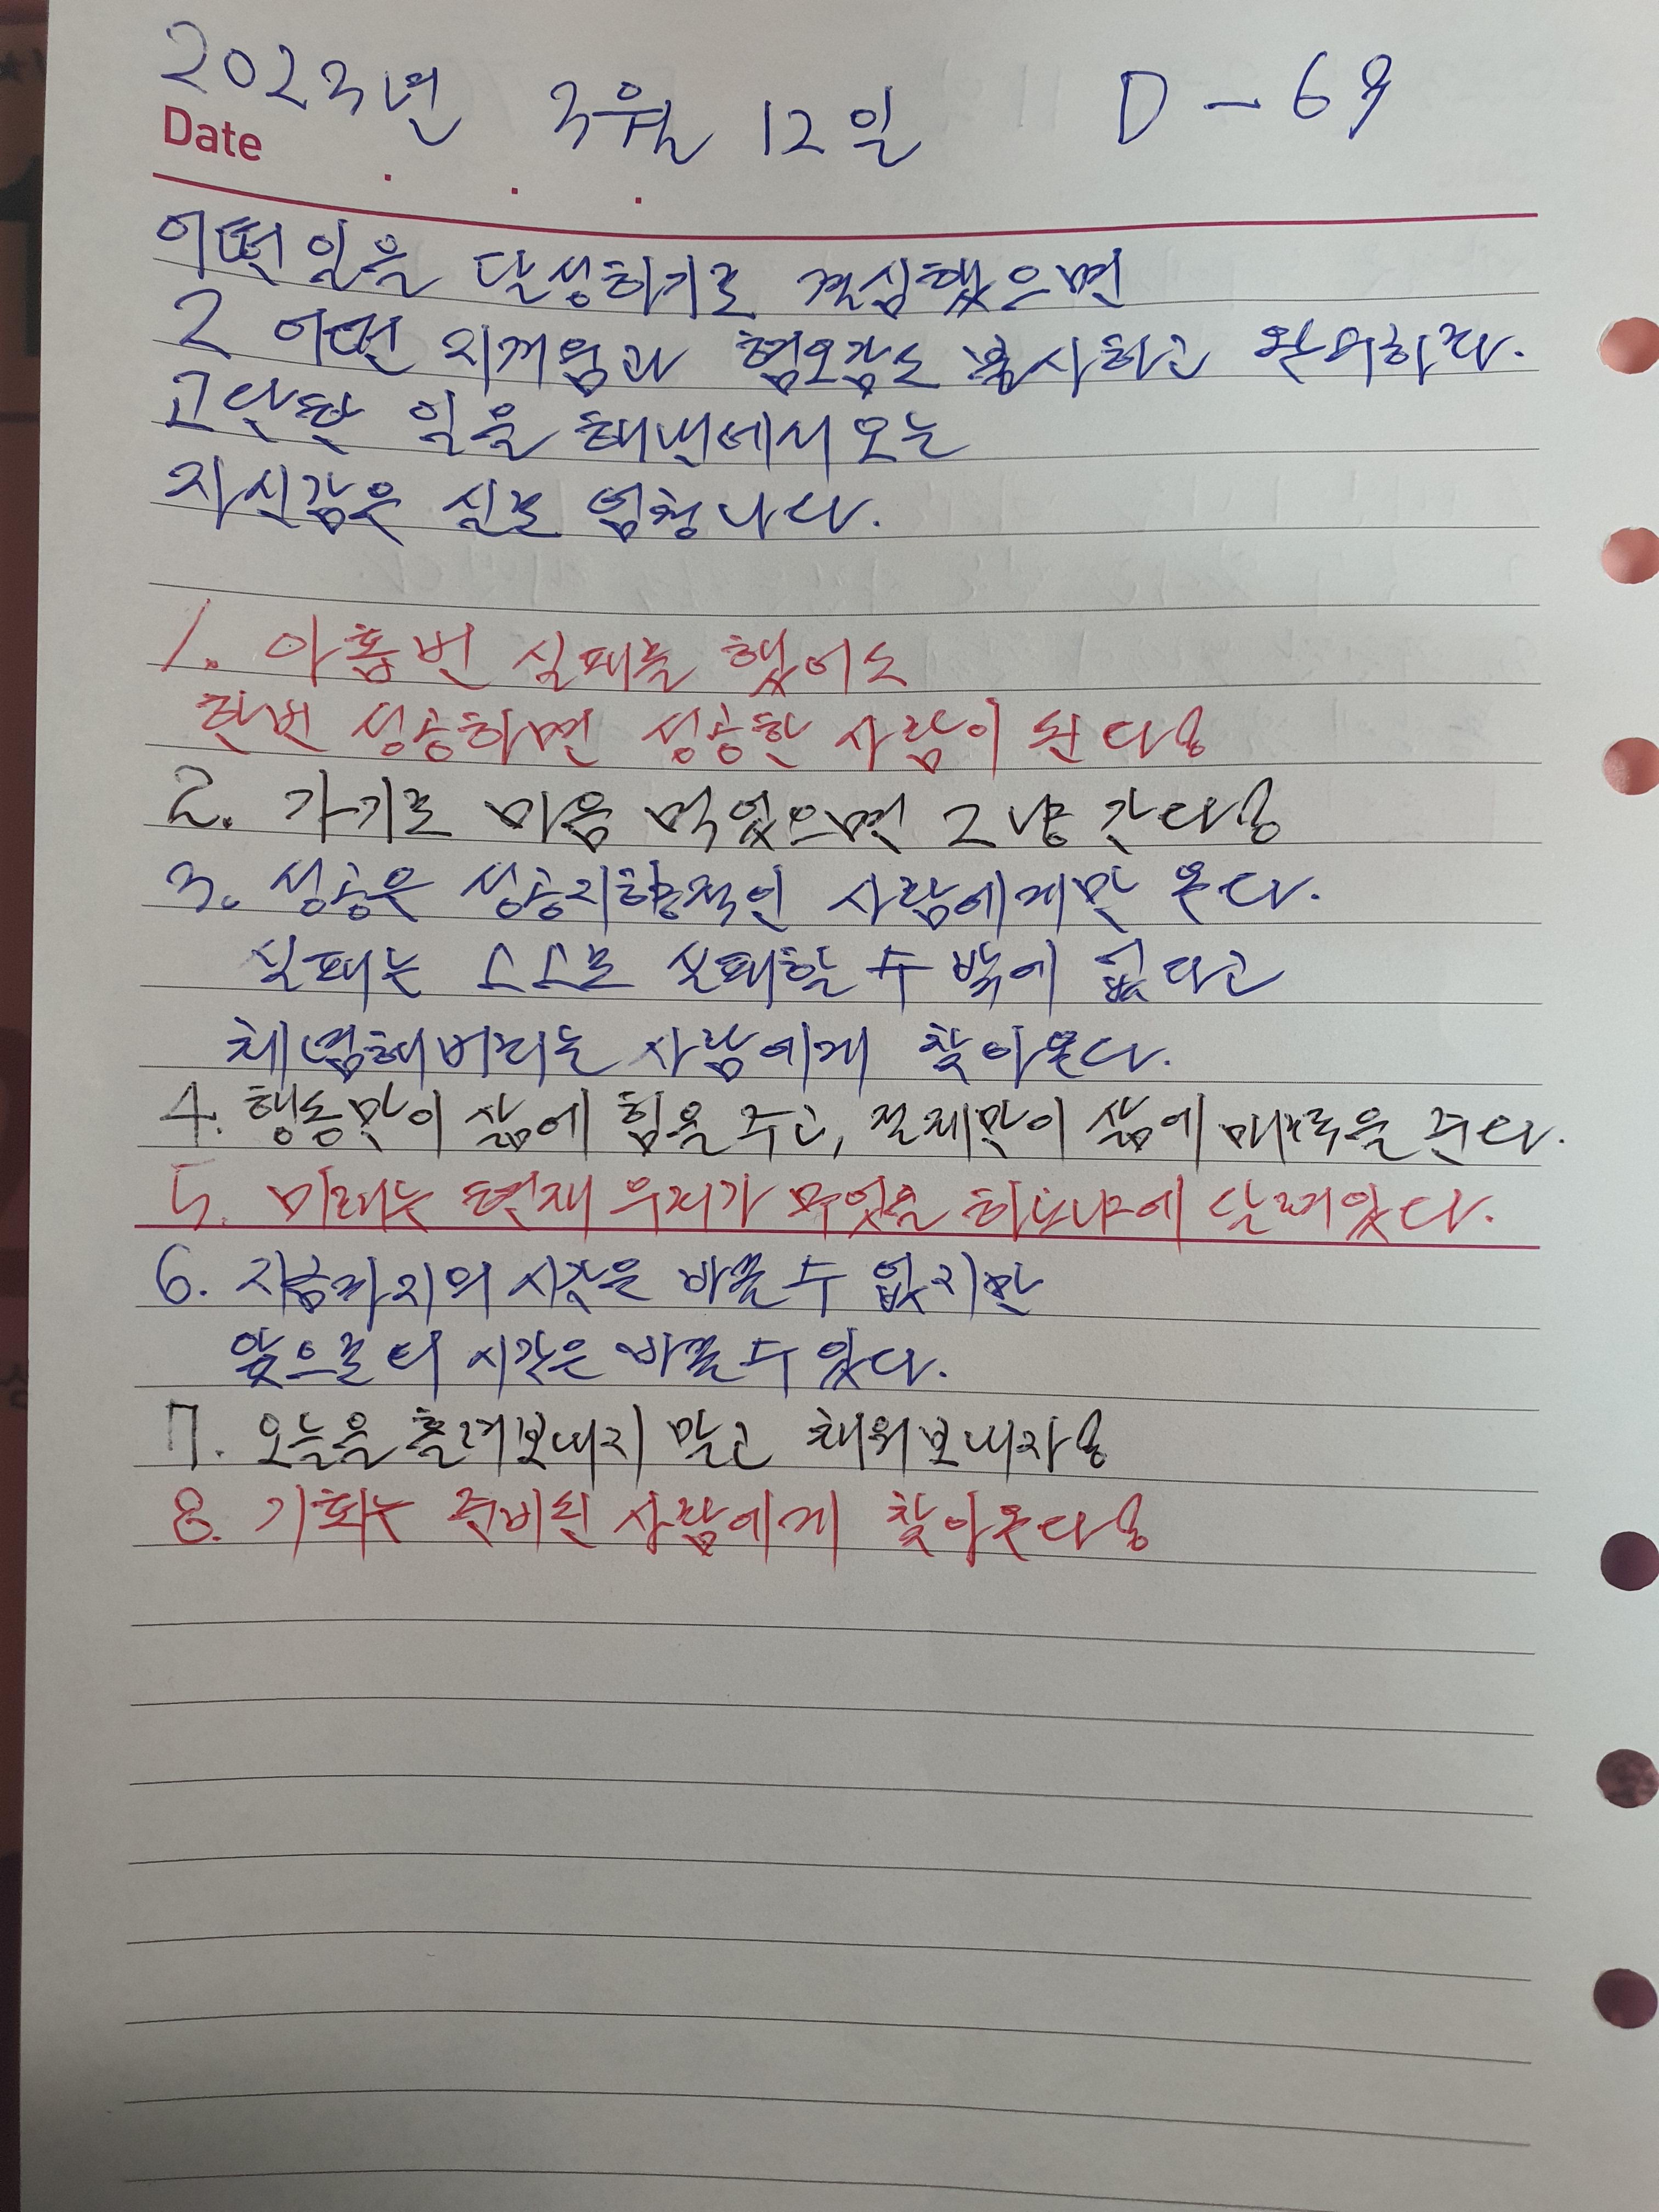 2023년 3월 12일 D-69
Date . . .
어떤 일을 달성하기로 결심했으면
그 어떤 지겨움과 혐오감도 불사하고 완수하라.
고단한 일을 해낸데서 오는
자신감은 실로 엄청나다.
1. 아홉번 실패를 했어도
한번 성공하면 성공한 사람이 된다!
2. 가기로 마음 먹었으면 그냥 간다!
3. 성공은 성공지향적인 사람에게만 온다.
실패는 스스로 실패할 수 밖에 없다고
체념해버리는 사람에게 찾아온다.
4. 행동만이 삶에 힘을 주고, 절제만이 삶에 매력을 준다.
5. 미래는 현재 우리가 무엇을 하느냐에 달려있다.
6. 지금까지의 시간은 바꿀 수 없지만
앞으로의 시간은 바꿀 수 있다.
7. 오늘을 흘려보내지 말고 채워보내자!
8. 기회는 준비된 사람에게 찾아온다!